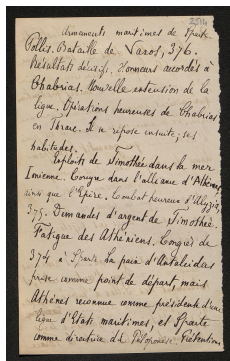 Armements maritimes de Sparte
Pollis. Bataille de Naxos, 376.
Résultats décisifs. Honneurs accordés à
Chabrias. Nouvelle extension de la
ligue. Opérations heureuses de Chabrias
en Thrace. Il se repose ensuite; ses
habitudes.
Exploits de Timothée dans la mer
Ionienne. Corcyre dans l'alliance d'Athènes
ainsi que l'Epire. Combat heureux d'Alyzia,
375. Demandes d'argent de Timothée.
Fatigue des Athéniens. Congrès de
374 à Sparte. La paix d'Antalcidas
prise comme point de départ, mais
Athènes reconnue comme présidente d'une
ligue d'Etats maritimes, et Sparte
comme directrice du Péloponèse. Prétentions